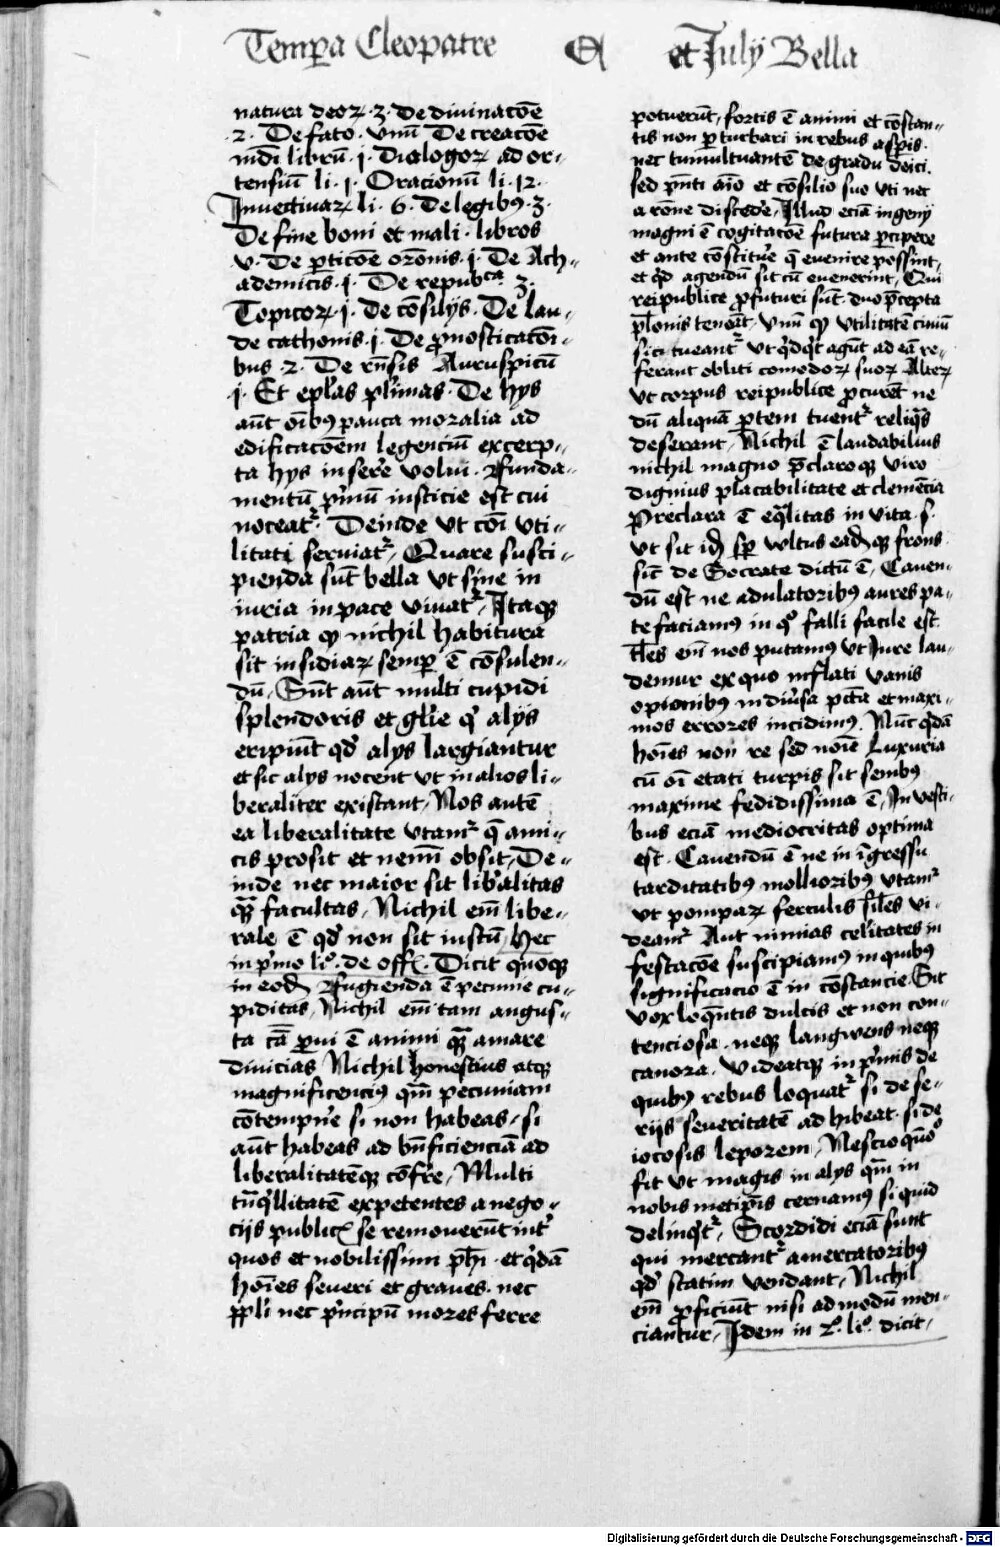 Temꝑa Cleopatre et Julij Bella
natura deoꝝ · 3 · De divinacōe
· 2 · De fato · vnū De creacōe
mdi librū · j · Dialogoꝝ ad or-
tensiū li · j · Oracionū li · 12 ·
Invectivaꝝ li · 6 · De legibꝰ · 3 ·
De fine boni et mali · libros
· v · De ꝑticōe orōnis · j · De Ach-
ademicis · j · De repubca · 3 ·
Topicoꝝ · j · De cōsilijs · De lau-
de cathonis · j · De ꝓnosticatōi-
bus · 2 · De rn̄sis Auruspicū
· j · Et ep̄las pl̄imas · De hys
aūt oībꝰ pauca moralia ad
edificacōem legenciū excerp-
ta hys inserere volui · Funda-
mentū p̄mū iusticie est cui
noceatr · Deinde vt cōi vti-
litati serviatr, Quare susci-
pienda sūt bella vt sine in
iuria in pace vivatr, Itaqꝫ
patria qꝫ nichil habitura
sit insidiaꝝ semꝑ ē cōsulen-
dū, Sūt aūt multi cupidi
splendoris et gl̄ie qͥ alijs
eripiūt qd̄ alys largiantur
et sic alys nocent vt in alios li-
beraliter existant, Nos autē
ea liberalitate vtamr q̄ ami-
cis prosit et nemī obsit, De-
inde nec maior sit lib̄alitas
qͣꝫ facultas, Nichil em̄ libe-
rale ē qd̄ non sit iustū, Hec
in p̄mo lio · de off · Dicit quoqꝫ
in eod̄ Fugienda ē pecunie cu-
piditas, Nichil em̄ tam angus-
ta tā ꝑvi ē animi qͣꝫ amare
divicias Nichil honestius atqꝫ
magnificenciꝰ qͣm pecuniam
cōtempn̄e si non habeas, si
aūt habeas ad bn̄ficienciā ad
liberalitatēqꝫ cōfr̄e, Multi
tn̄qͥllitatē expetentes a nego-
cijs public se removerūt int̄
quos et nobilissimi ph̄i · et qͥdā
hoīes severi et graves · nec
ppl̄i nec pͥncipū mores ferre
potuerūt, fortis ē animi et cōstan-
tis non ꝑturbari in rebus aspis ·
nec tumultuantē de gradu deici ·
sed p̄nti aīo et cōsilio suo vti nec
a rōne disced̄e, Illud eciā ingenij
magni ē cogitacōe futura ꝑcipere
et ante cōstitu̅e q̄ evenire possint,
et qd̄ agendū sit cū evenerint, Qui
reipublice ꝓfuturi sūt · duo p̄cepta
pl̄onis teneāt · vnū qꝫ vtilitatē civiū
sic tueantr vt qͥdqͥd agūt ad eā re-
ferant obliti comodoꝝ suoꝝ Alteꝝ
vt corpus reipublice ꝓcurēt ne
dū aliquā ꝑtem tuentr reliqͣs
deserant, Nichil ē laudabilius
nichil magno p̄claroqꝫ viro
dignius placabilitate et clemēcia
Preclara ē eq̄litas in vita · s ·
vt sit id̄ sꝑ vultus ead̄qꝫ frons ·
sic̄ de Socrate dictū ē, Caven-
dū est ne adulatoribꝰ aures pa-
te faciamꝰ in qͦ falli facile est
t̄les em̄ nos putamꝰ vt Jure lau-
demur ex quo inflati vanis
opionibꝰ in div̄sa pctā et maxi-
mos errores incidimꝰ. Nūt qͥdā
hoīes non re sed noīe Luxuria
cū oī etati turpis sit senibꝰ
maxime fedidissima ē, In vesti-
bus eciā mediocritas optima
est · Cavendū ē ne in īgressu
tarditatibꝰ mollioribꝰ vtamr
vt pompaꝝ ferculis siles vi-
deamr Aut nimias cel̄itates in
festacōe suscipiamꝰ in quibꝰ
significacio ē in cōstancie · Sit
vox loqn̄tis dulcis et non con-
tenciosa · neqꝫ langwens neqꝫ
canora · videatqꝫ in p̄mis de
quibꝰ rebus loquatr si de se-
rijs severitatē adhibeat · si de
iocosis leporem, Nescio quōo
fit vt magis in alys qͣm in
nobis metip̄is cernamꝰ si quid
delinqͥtr, Scordidi eciā sunt
qui mercantr a mercatoribꝰ
qd̄ statim vendant, Nichil
em̄ ꝓficiūt nisi admodū men-
ciantur, Idem in 2o · lio · dicit,
Digitalisierung gefördert durch die Deutsche Forschungsgemeinschaft - DFG